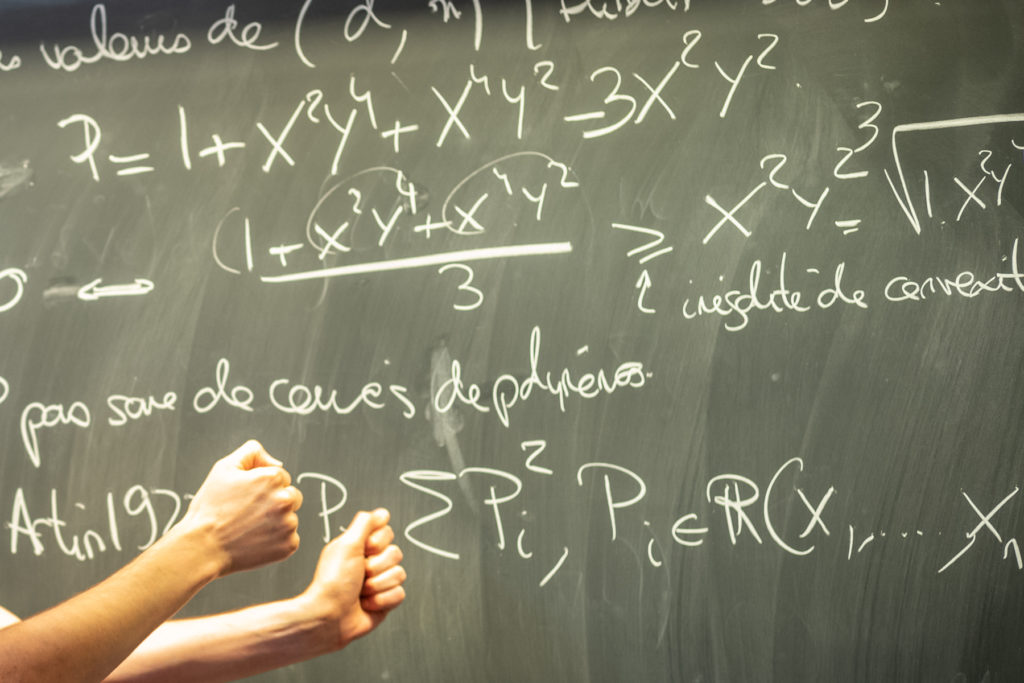 valeurs de (d, n)
P = 1 + X²Y⁴ + X⁴Y² - 3X²Y²
(1 + X²Y⁴ + X⁴Y² / 3 ≥ X²Y² = ³√1. X²Y
0 ↔ ↑ inégalité de convexit
pas somme de carrés de polynômes.
Artin 192 P Σ Pᵢ², Pᵢ ∈ ℝ(X₁, ...., Xₙ